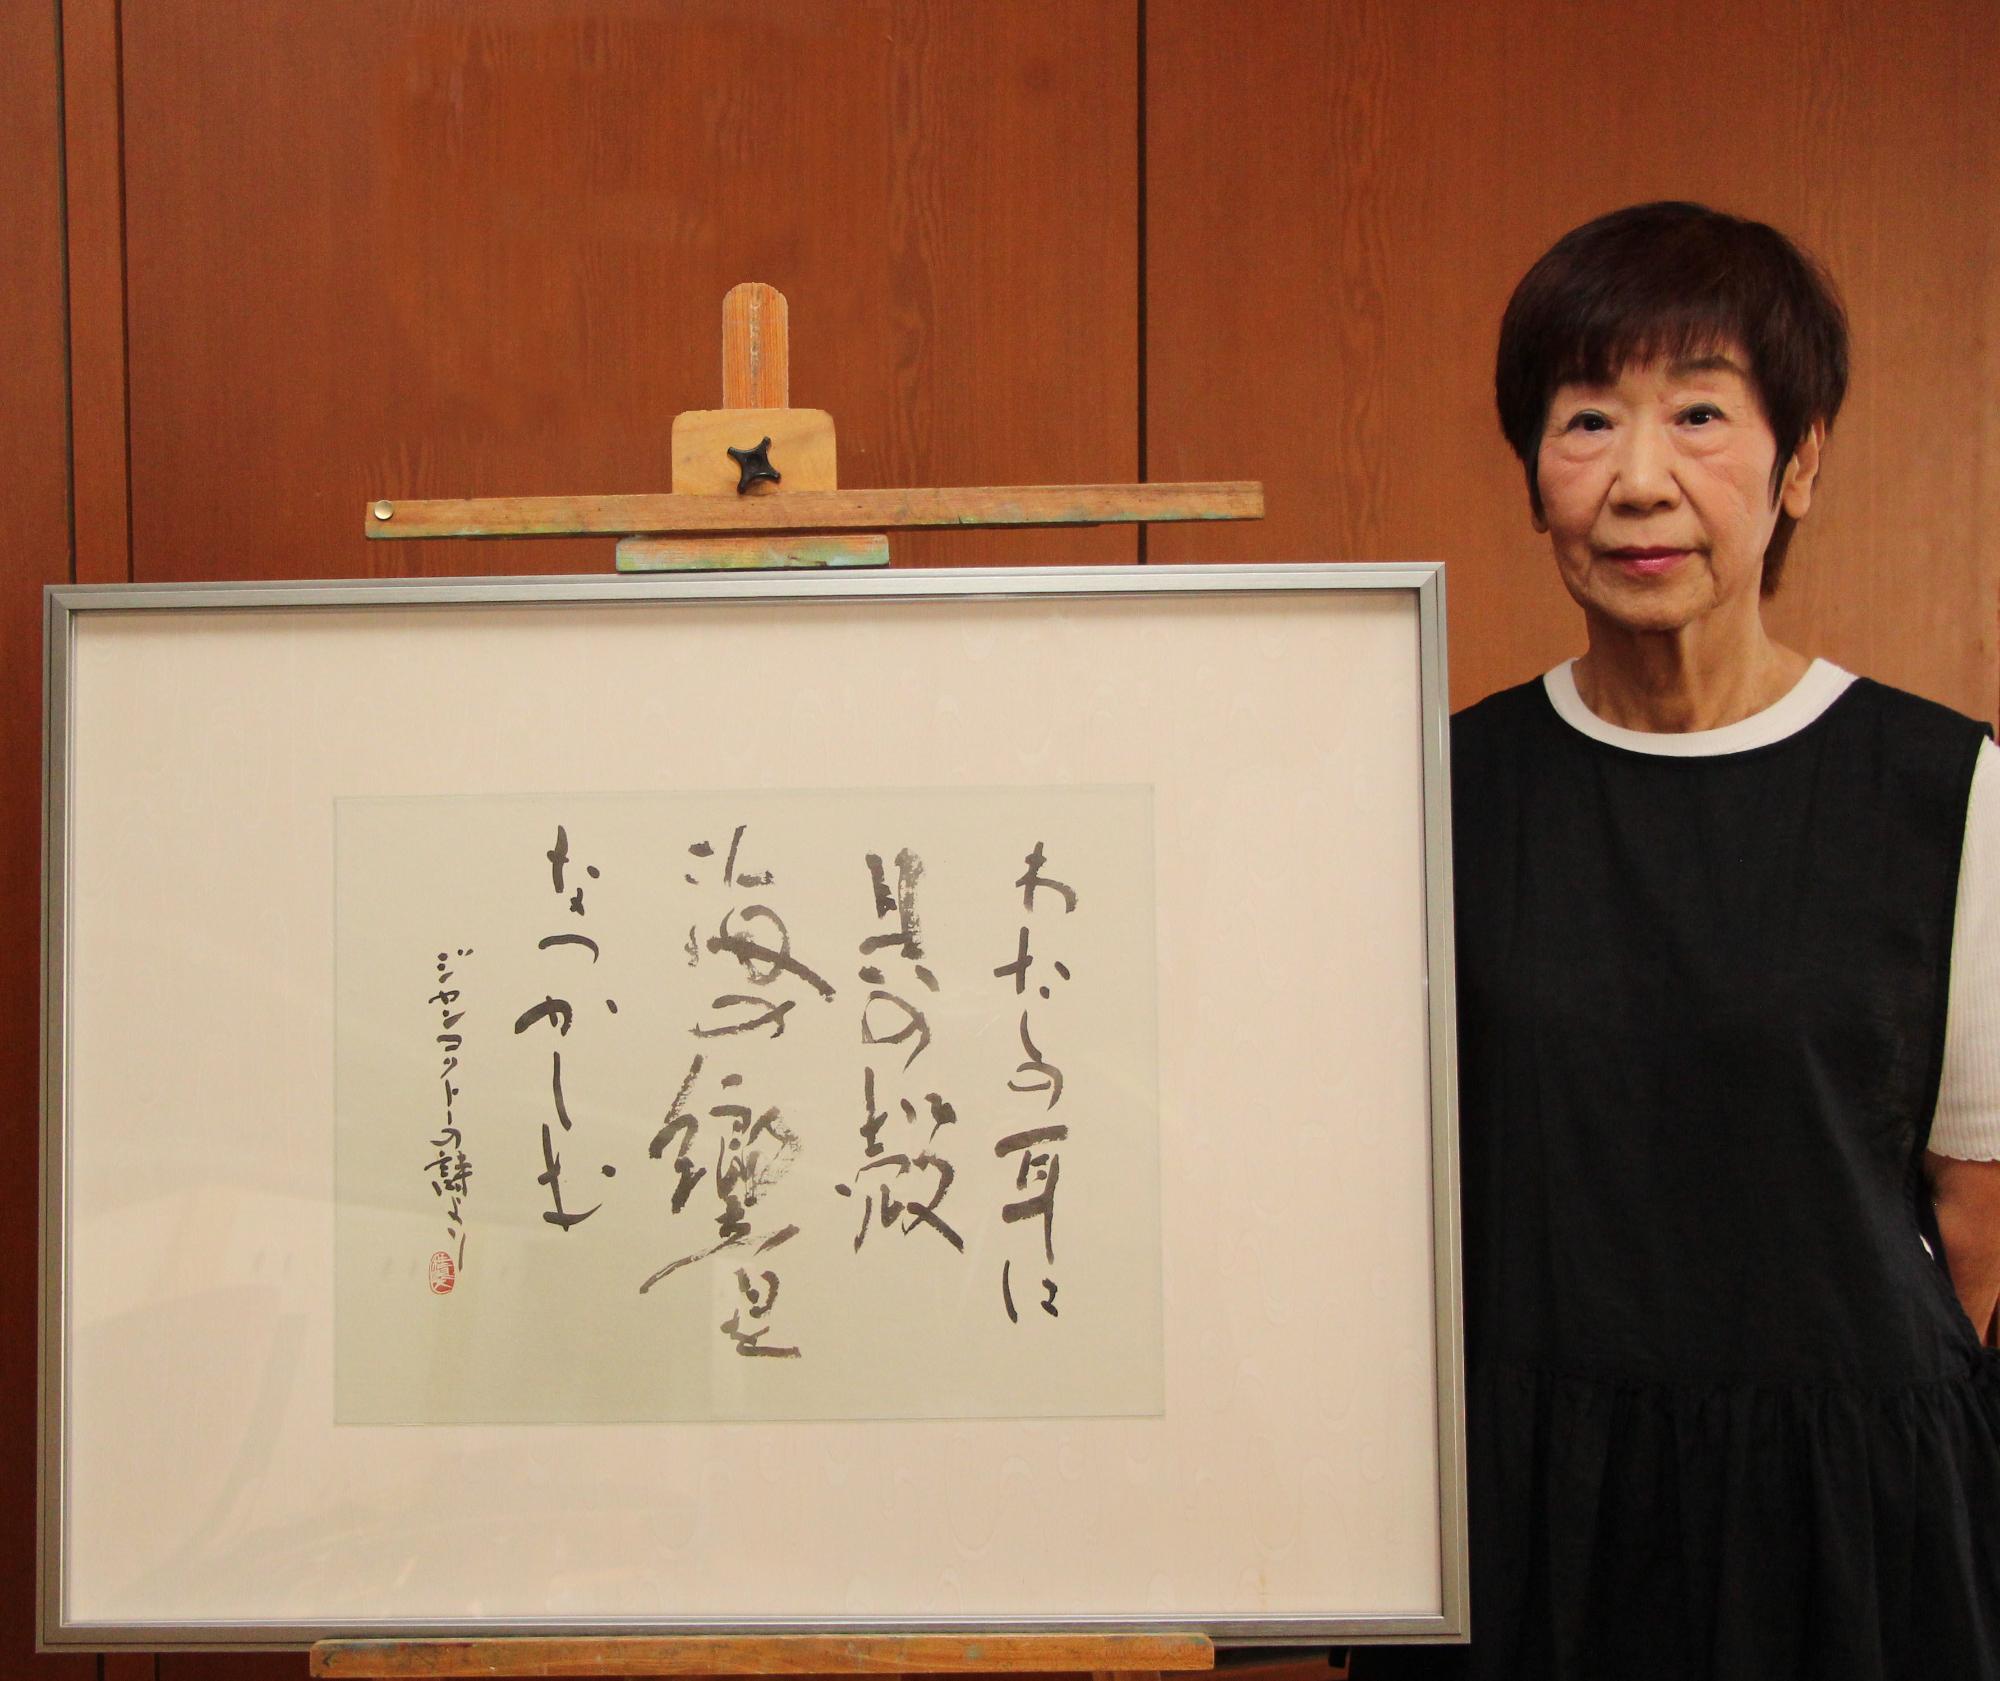 わたしの耳は
貝の殻
海の響を
なつかしむ
ジャンコクトーの詩より